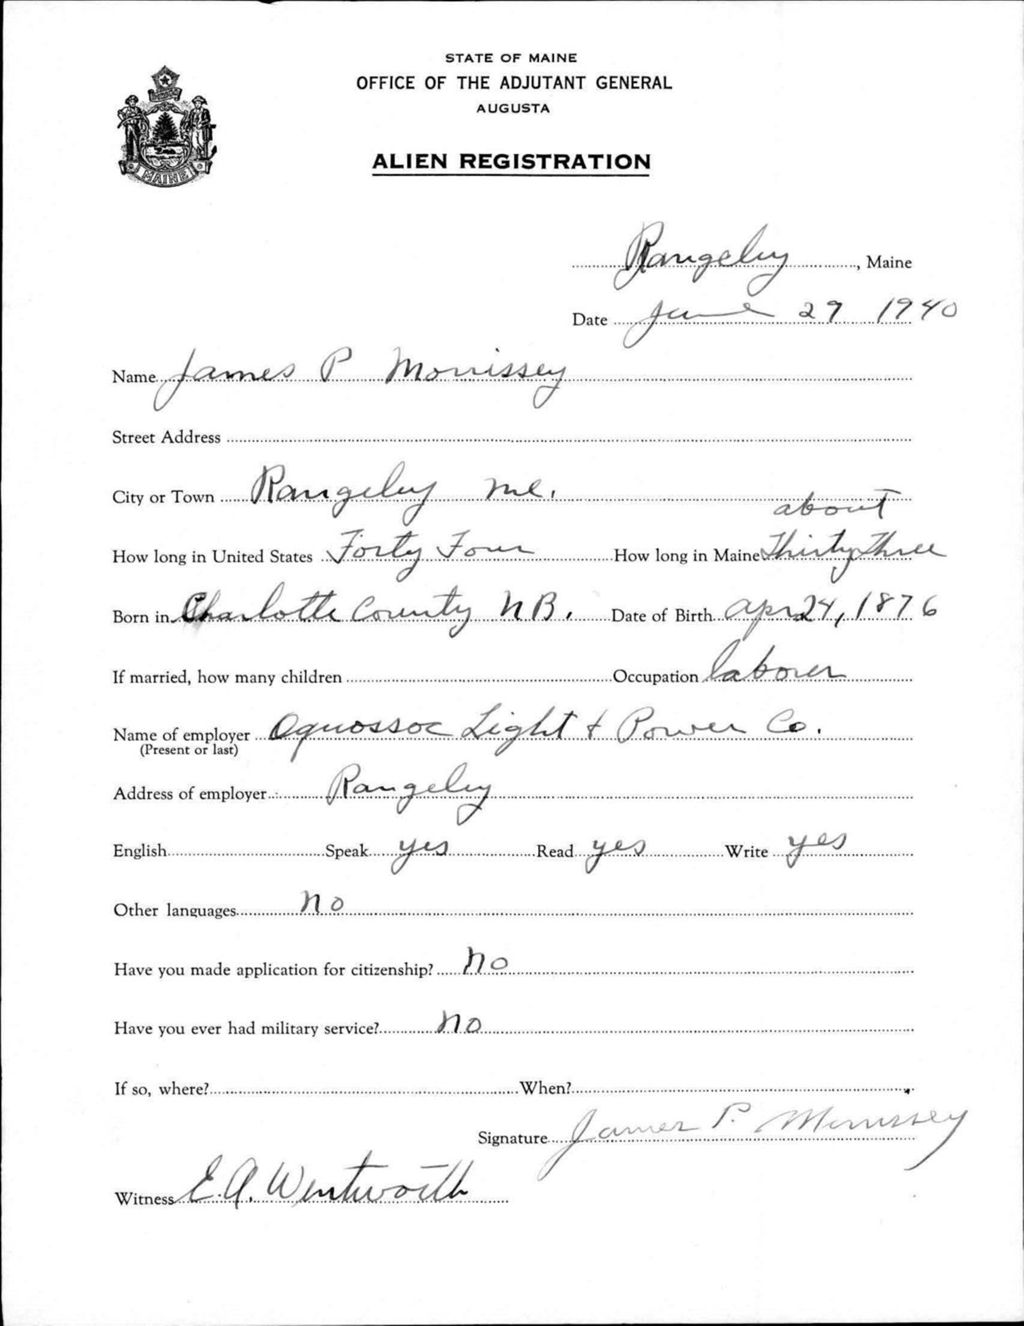 STATE OF MAINE
OFFICE OF THE ADJUTANT GENERAL
AUGUSTA
ALIEN REGISTRATION
MAINE
Rangeley, Maine
Date June 29 1940
Name James P Morrissey
Street Address
City or Town Rangeley Me.
about
How long in United States Forty Four How long in Maine Thirty Three
Born in Charlotte County N B. Date of Birth Apr 24, 1876
If married, how many children Occupation laborer
Name of employer Oquossoc Light & Power Co.
(Present or last)
Address of employer Rangeley
English Speak yes Read yes Write yes
Other languages No
Have you made application for citizenship? No
Have you ever had military service? No
If so, where? When?
Signature James P. Morrissey
Witness E.A. Wentworth